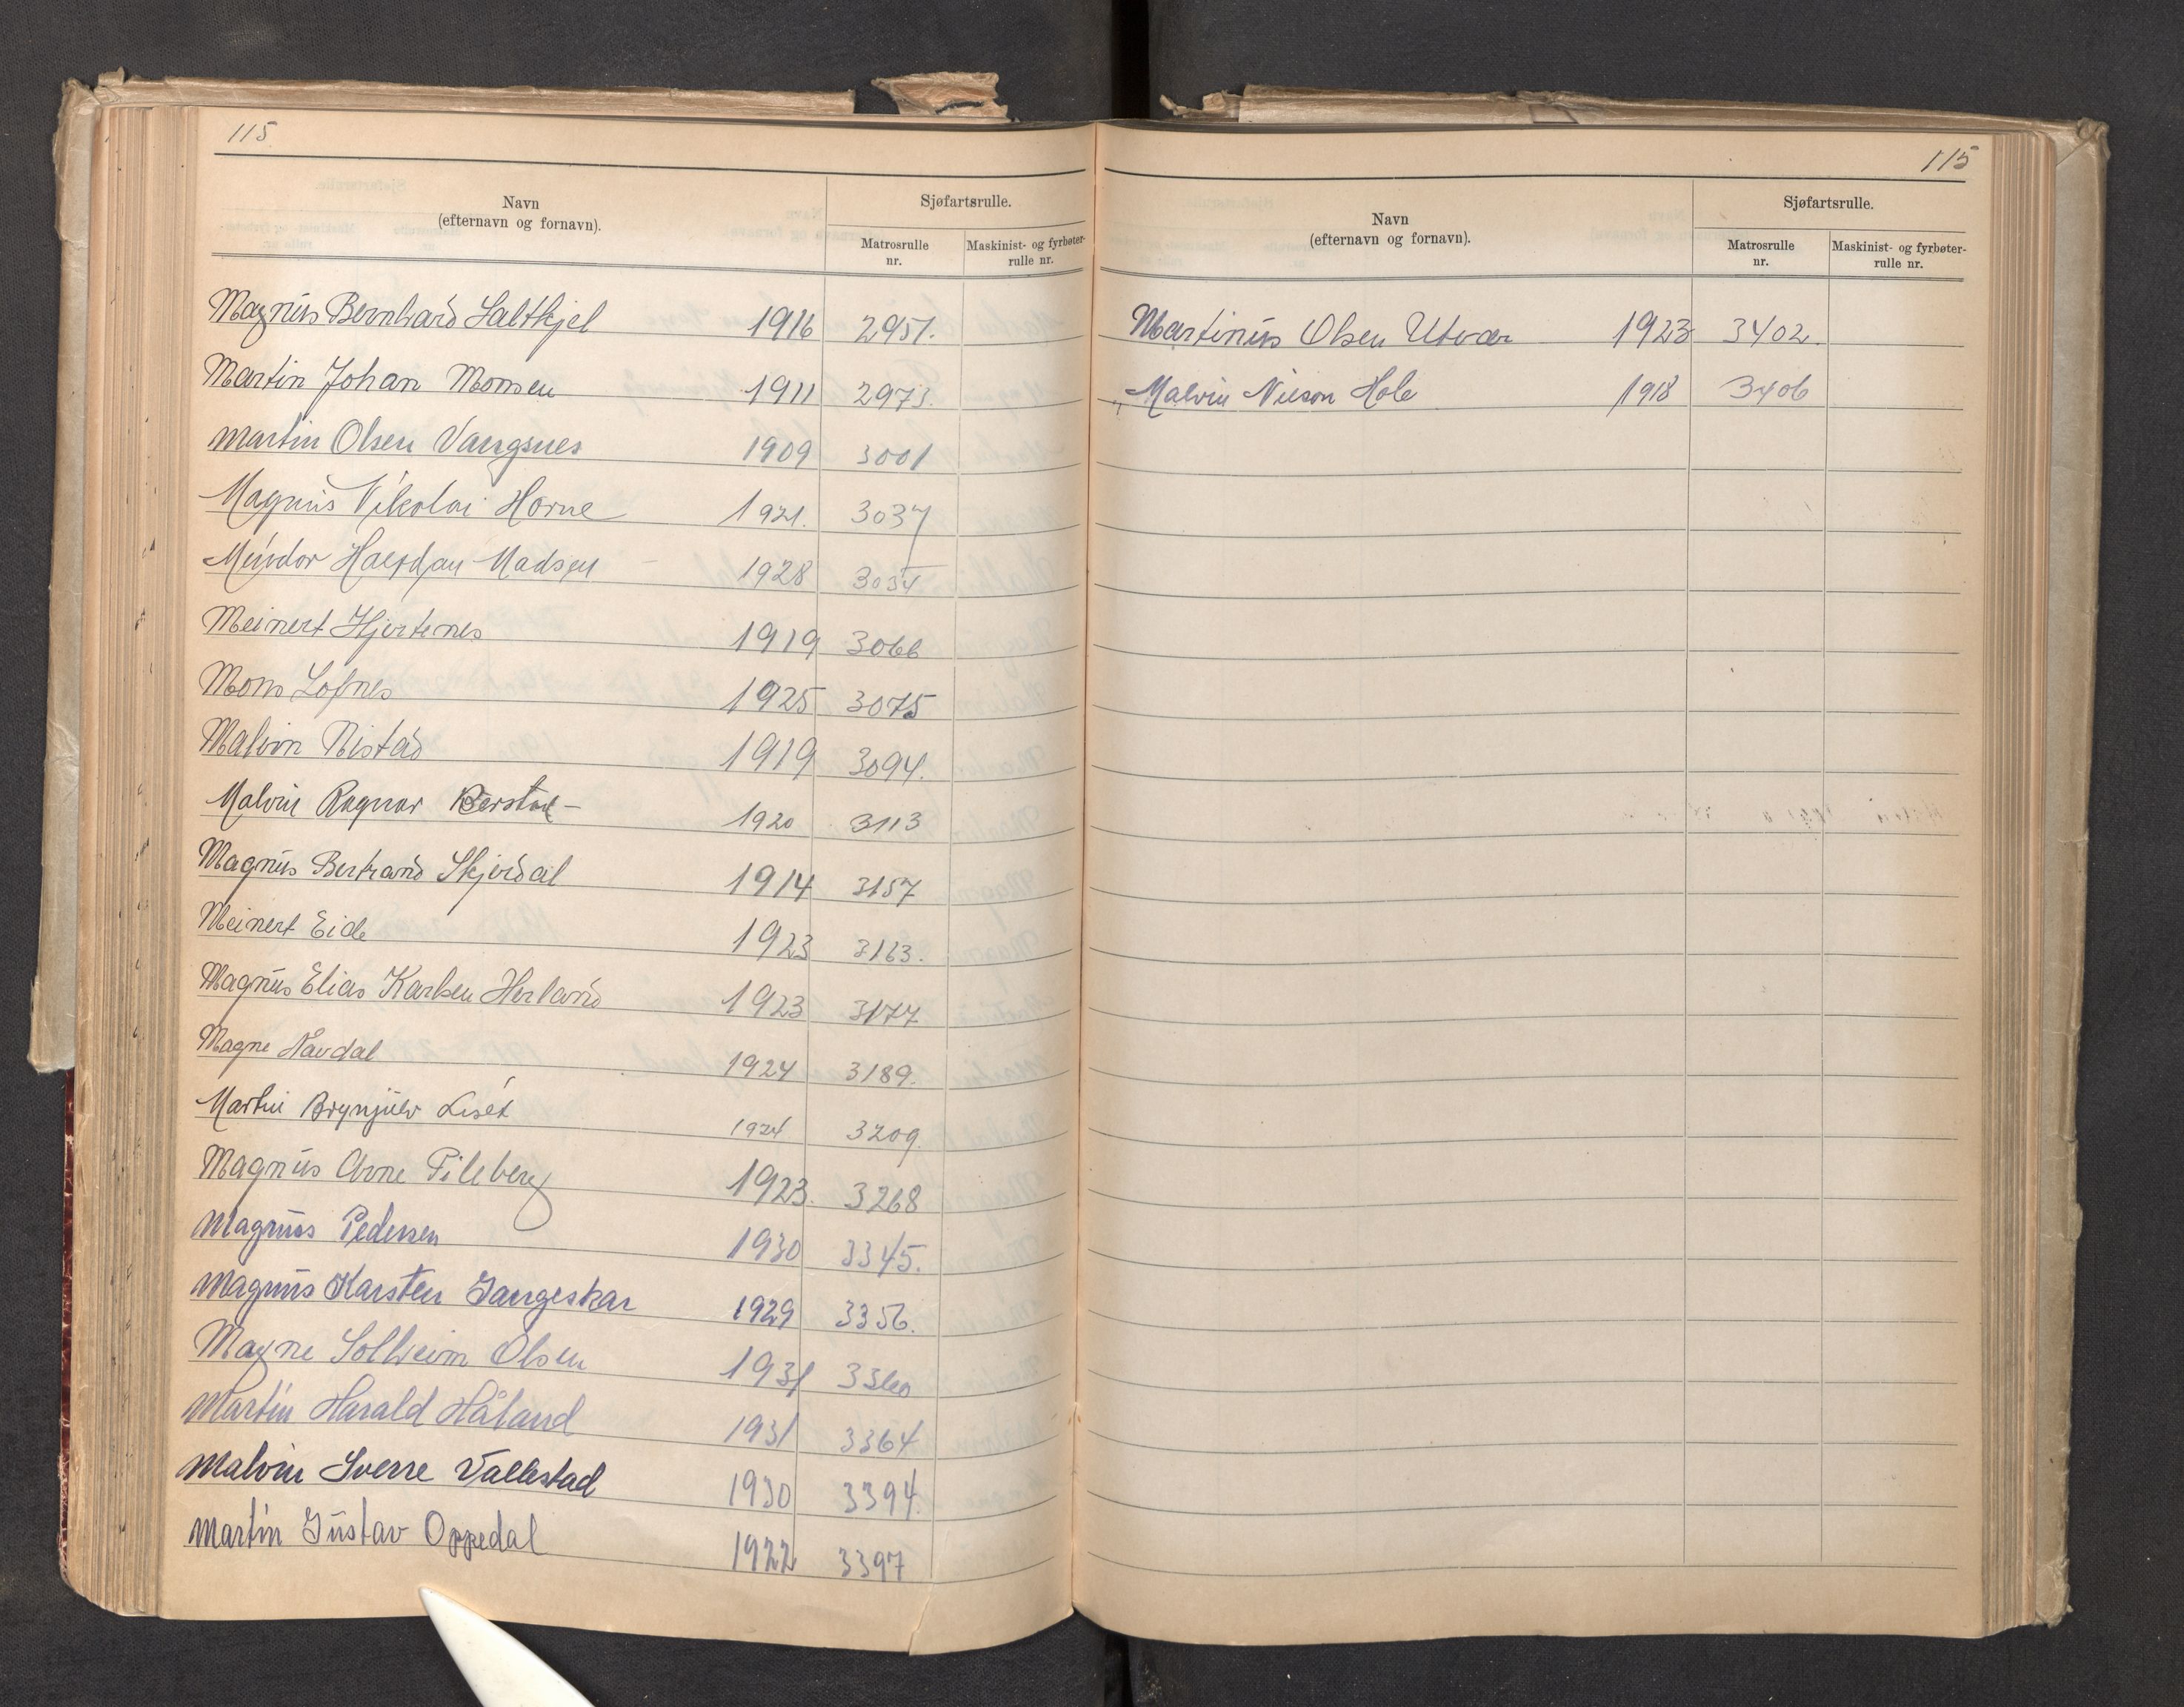 115
Navn
(efternavn og fornavn).
Sjøfartsrulle.
Matrosrulle
nr.
Maskinist- og fyrbøter-
rulle nr.
Magnus Bernhard Saltkjel 1916 2951.
Martin Johan Monsen 1911 2973.
Martin Olsen Vangsnes 1909 3001
Magnus Nikolai Horne 1921. 3037
Halfdan Madsen 1928
Meinert Hjertenes 1919 3066
Mons Lofnes 1925 3075
Malvin Nistad 1919 3094.
Malvin Ragnar 1920 3113
Magnus Bertrand Skjerdal 1914 3157
Meinert Eide 1923 3163.
Magnus Elias Karlsen Herland 1923 3177
Magne Nåvdal 1924 3189.
Martin Brynjulv Liset 1924 3209.
Magnus Arne Pileberg 1923. 3268
Magnus Pedersen 1930 3345.
Magnus Karsten Gangeskar 1929 3356.
Magne Solheim Olsen 1931 3360
Martin Harald Håland 1931 3364
Malvin Sverre Vallestad 1930 3394.
Martin Gustav Oppedal 1922 3397
115
Navn
(efternavn og fornavn).
Sjøfartsrulle.
Matrosrulle
nr.
Maskinist- og fyrbøter-
rulle nr.
Martinus Olsen Utvær 1923 3402.
Malvin Hole 1918 3406